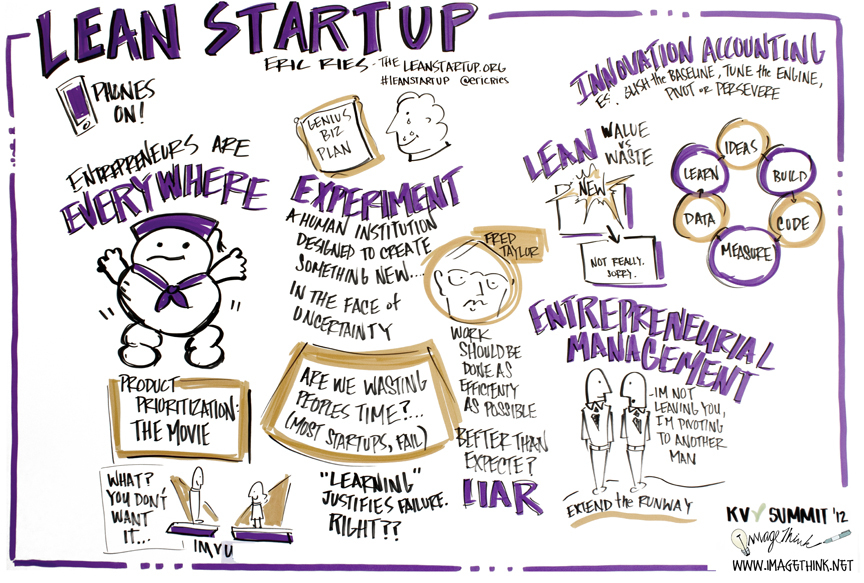 LEAN STARTUP
ERIC RIES - THE LEANSTARTUP.ORG
#leanstartup @ericries
PHONES
ON!
GENIUS
BIZ
PLAN
INNOVATION ACCOUNTING
the BASELINE, TUNE the ENGINE,
PIVOT or PERSEVERE
ENTREPRENEURS ARE
EVERYWHERE
EXPERIMENT
A HUMAN INSTITUTION
DESIGNED TO CREATE
SOMETHING NEW...
IN THE FACE of
UNCERTAINTY
FRED
TAYLOR
WORK
SHOULD BE
DONE AS
EFFICIENTY
AS POSSIBLE
BEFTER THAN
EXPECTE?
LIAR
LEAN
VALUE
vs
WASTE
NEW
NOT REALLY.
SORRY.
IDEAS
BUILD
CODE
MEASURE
DATA
LEARN
ENTREPRENEURIAL
MANAGEMENT
-I'M NOT
LEAVING YOU,
I'M PIVOTING
TO ANOTHER
MAN
EXTEND the RUNWAY
PRODUCT
PRIORITIZATION:
THE MOVIE
ARE WE WASTING
PEOPLES TIME?...
(MOST STARTUPS, FAIL)
WHAT?
YOU DON'T
WANT
IT...
IMVU
"LEARNING"
JUSTIFIES FAILURE.
RIGHT??
KV SUMMIT '12
ImageThink
WWW.IMAGETHINK.NET